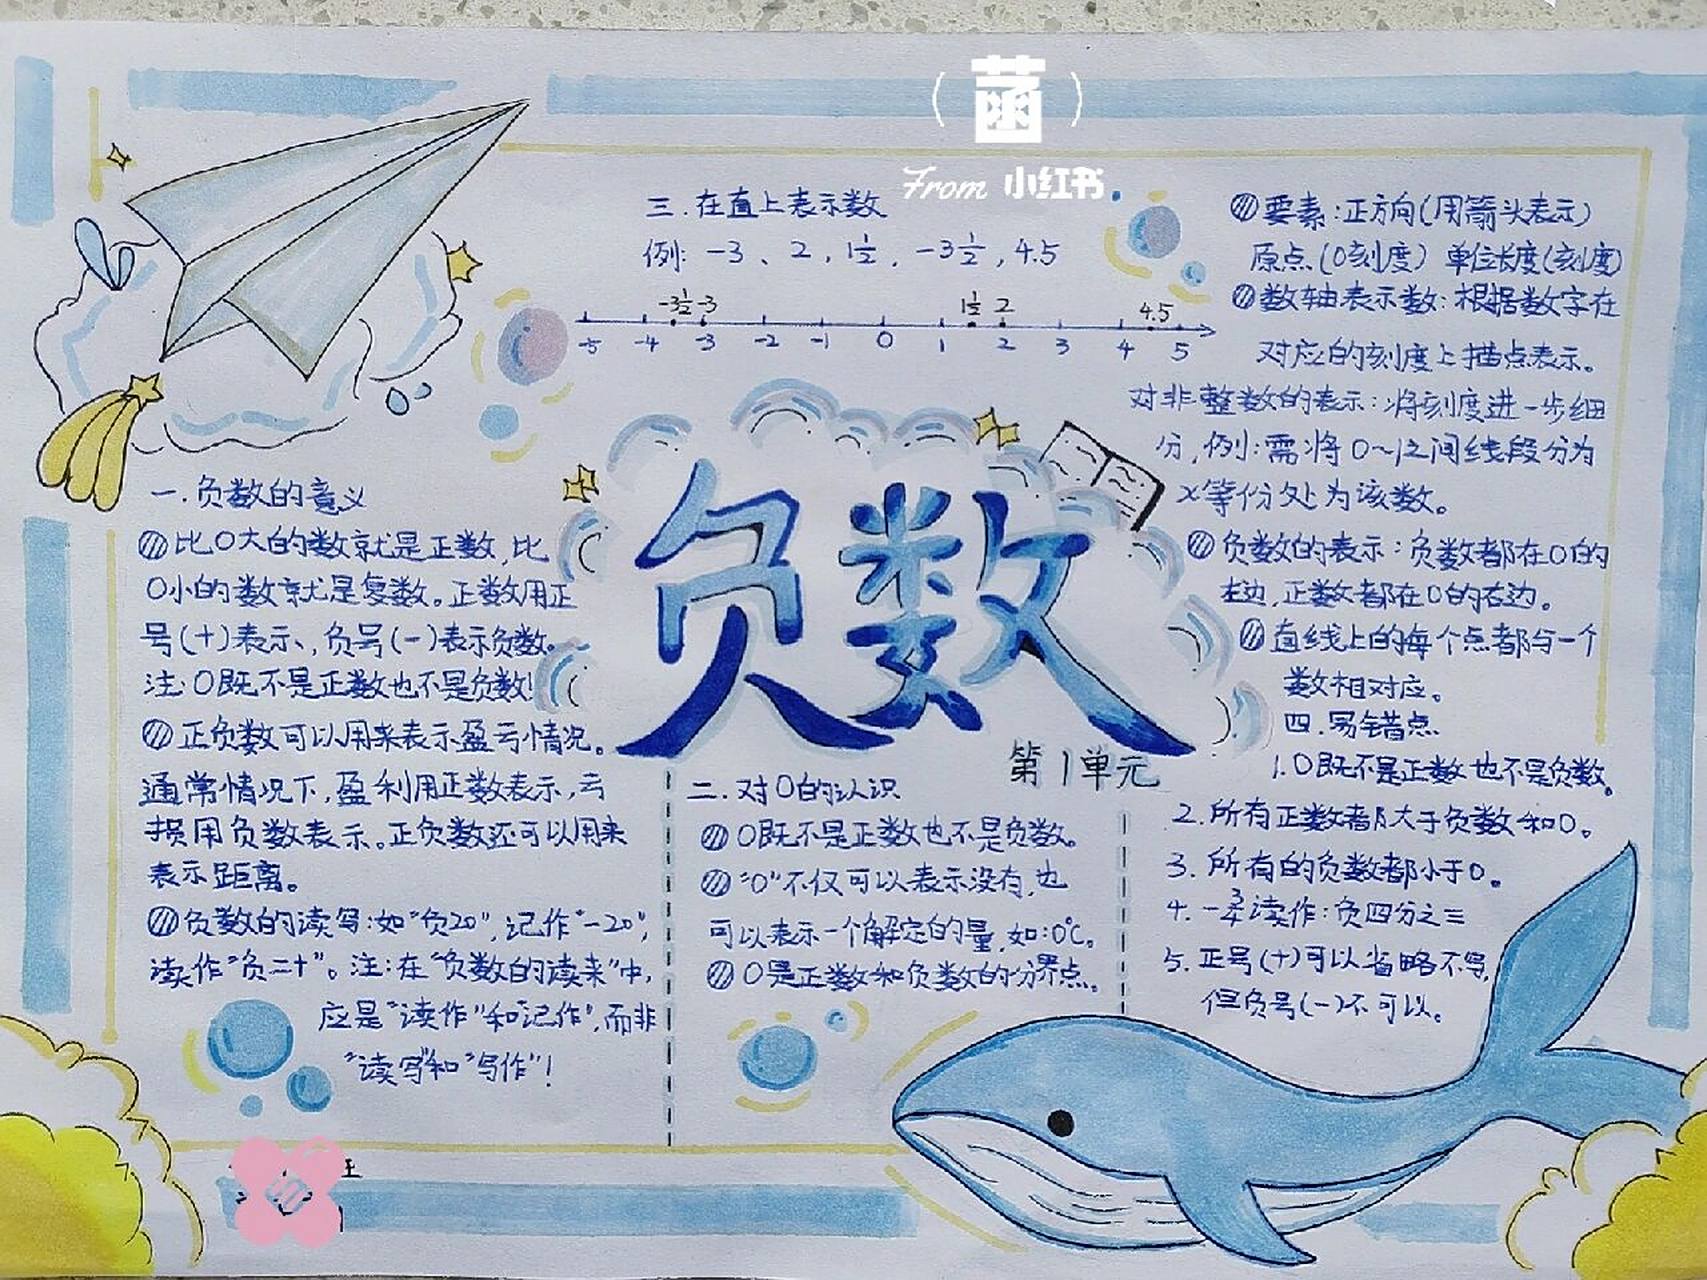 (菡)
From 小红书
负数
第1单元
一.负数的意义
比0大的数就是正数,比
0小的数就是复数。正数用正
号(+)表示、,负号(-)表示负数。
注:0既不是正数也不是负数!
正负数可以用来表示盈亏情况。
通常情况下,盈利用正数表示,亏
损用负数表示。正负数还可以用来
表示距离。
负数的读写:如"负20",记作"-20",
读作"负二十"。注:在"负数的读来"中,
应是"读作"和"记作",而非
"读写"和"写作"!
二.对0的认识
0既不是正数也不是负数。
"0"不仅可以表示没有,也
可以表示一个解定的量,如:0℃。
0是正数和负数的分界点。
三.在直上表示数
例: -3、2,1½,-3½,4.5
-3½ -3 1½ 2 4.5
-5 -4 -3 -2 -1 0 1 2 3 4 5
要素:正方向(用箭头表示)
原点(0刻度) 单位长度(刻度)
数轴表示数:根据数字在
对应的刻度上描点表示。
对非整数的表示:将刻度进一步细
分,例:需将0~1之间线段分为
x等份处为该数。
负数的表示:负数都在0的
左边,正数都在0的右边。
直线上的每个点都与一个
数相对应。
四.易错点
1.0既不是正数也不是负数。
2.所有正数都大于负数和0。
3.所有的负数都小于0。
4.-¾读作:负四分之三
5.正号(+)可以省略不写,
但负号(-)不可以。